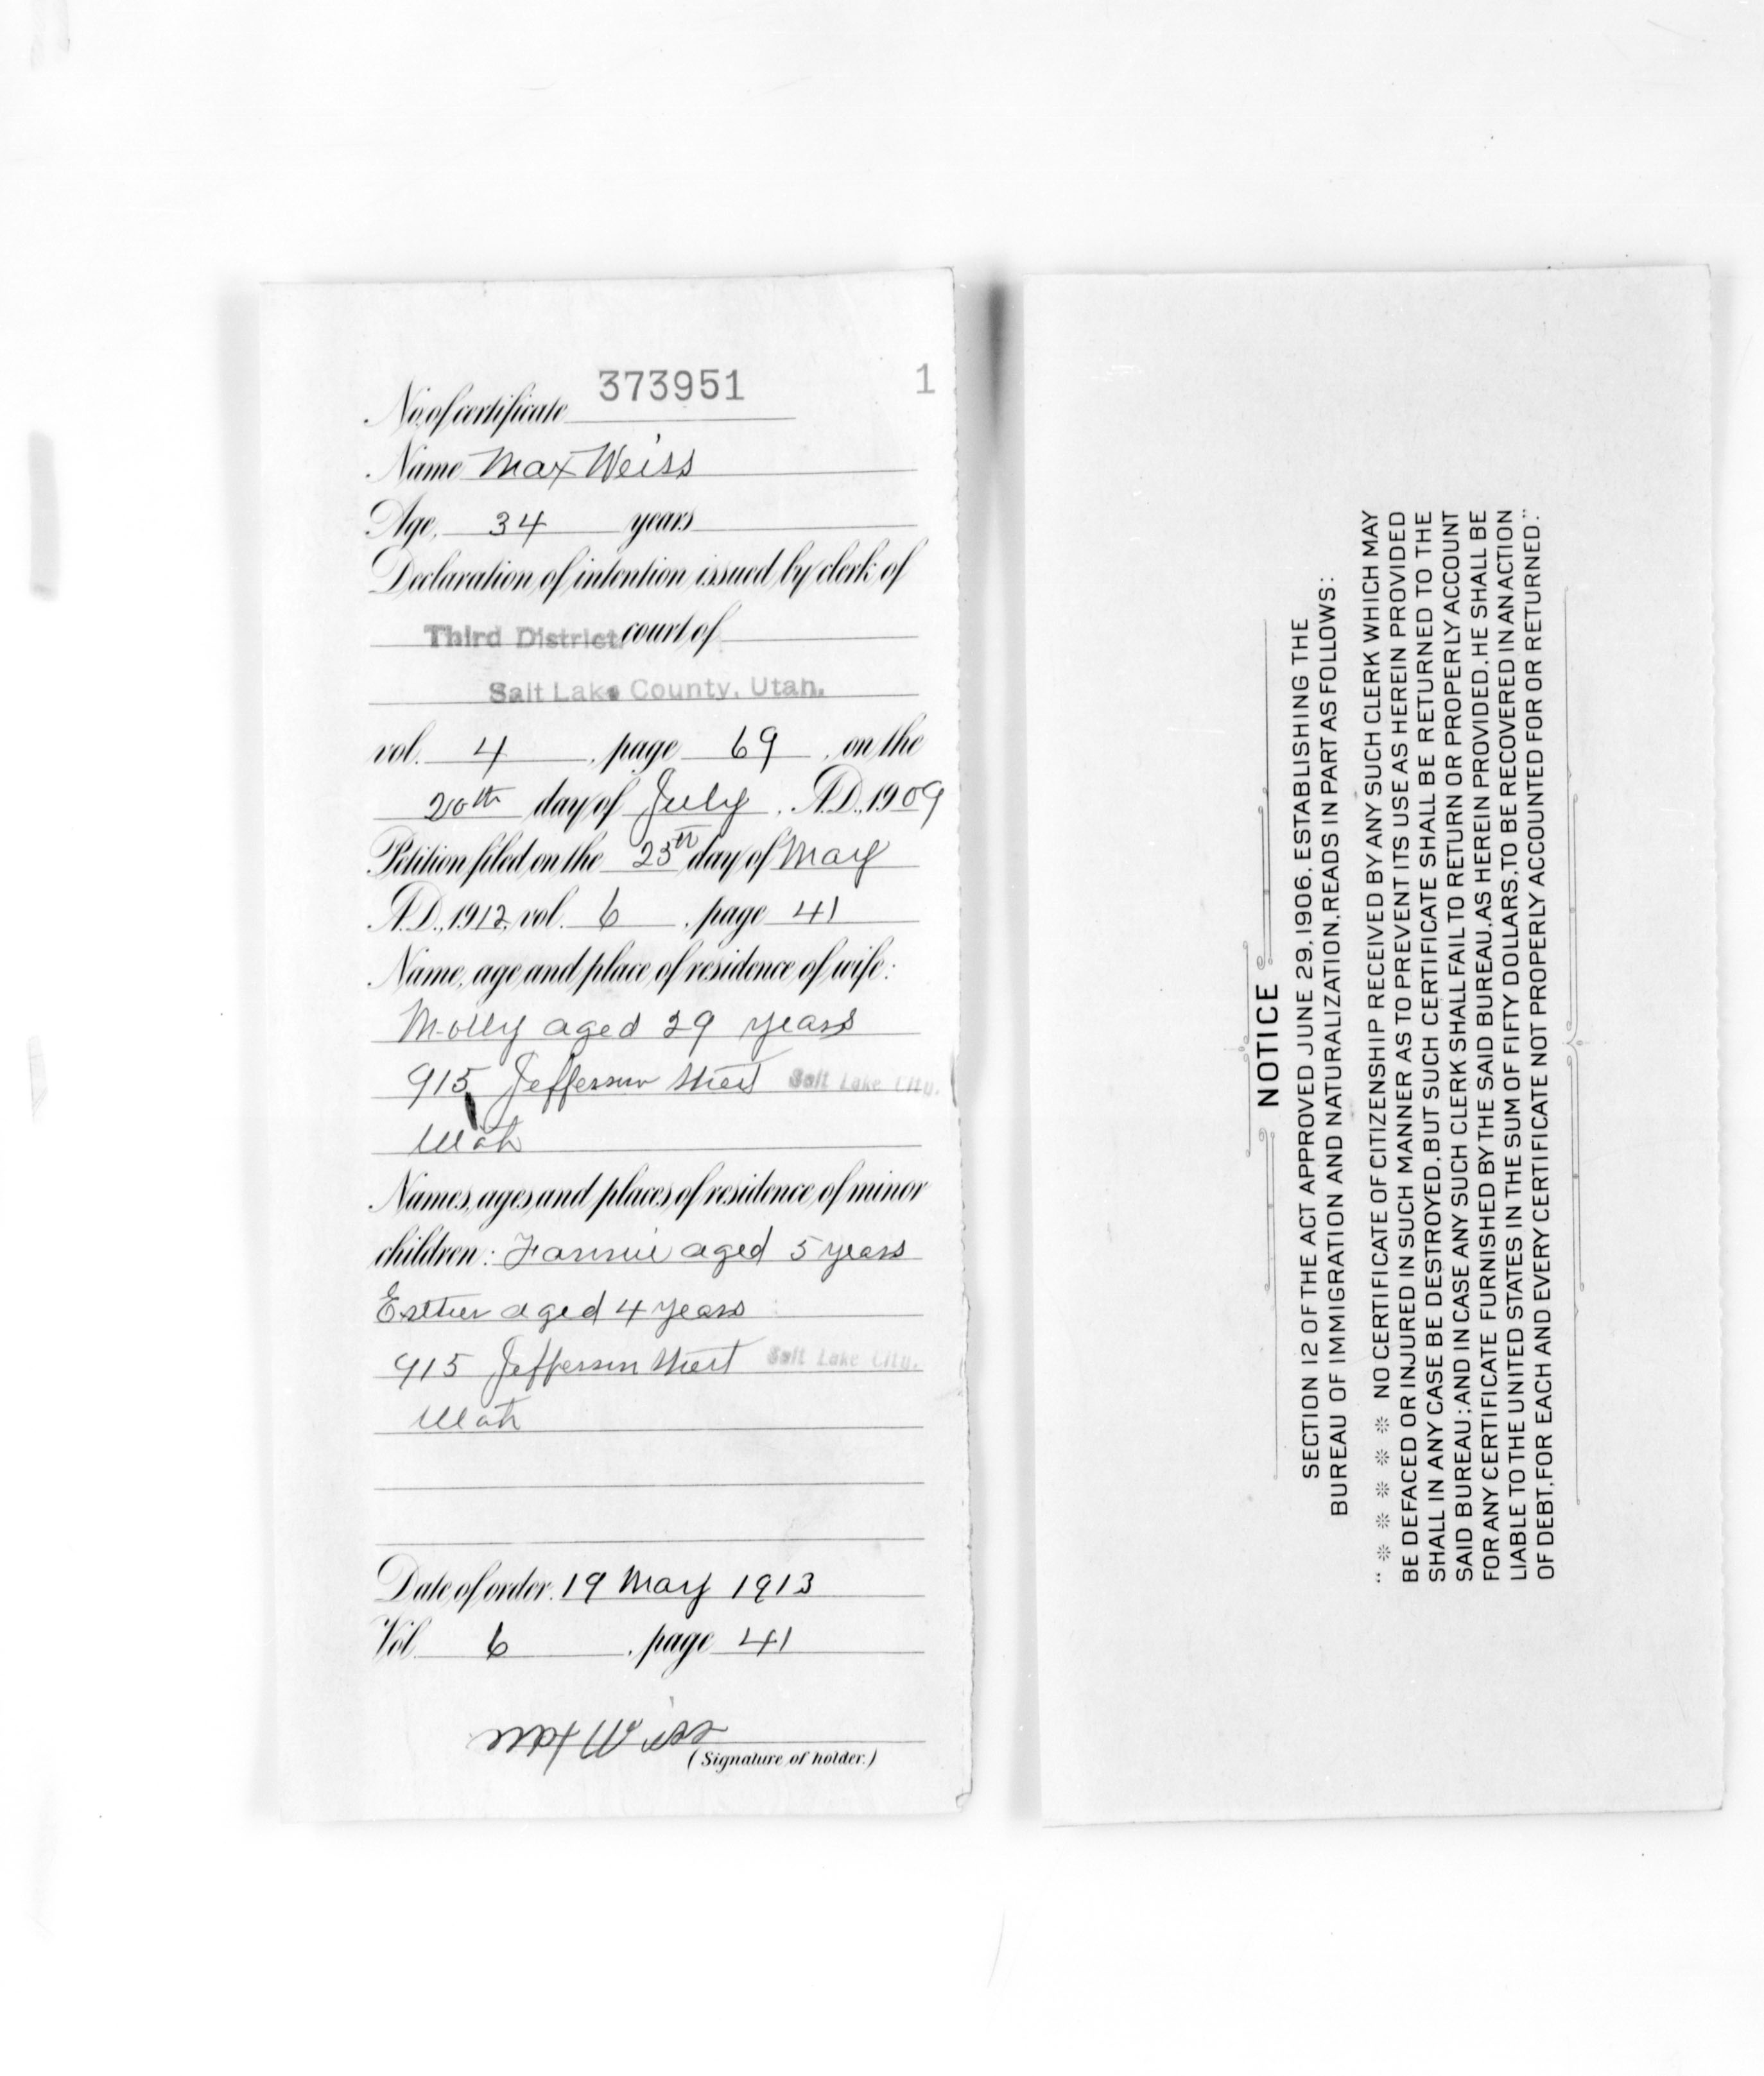 373951 1
No. of certificate
Name Max Weiss
Age, 34 years
Declaration of intention issued by clerk of
Third District court of
Salt Lake County, Utah.
vol. 4, page 69, on the
20th day of July, A.D. 1909
Petition filed on the 25th day of May
A.D., 1912, vol. 6, page 41
Name, age and place of residence of wife:
Molly aged 29 years
915 Jefferson Street Salt Lake City,
Utah
Names, ages and places of residence of minor
children: Fannie aged 5 years
Esther aged 4 years
915 Jefferson Street Salt Lake City,
Utah
Date of order, 19 May 1913
Vol. 6, page 41
Max Weiss
(Signature of holder.)
NOTICE
SECTION 12 OF THE ACT APPROVED JUNE 29, 1906, ESTABLISHING THE
BUREAU OF IMMIGRATION AND NATURALIZATION, READS IN PART AS FOLLOWS:
"※ ※ ※ ※ ※ NO CERTIFICATE OF CITIZENSHIP RECEIVED BY ANY SUCH CLERK WHICH MAY
BE DEFACED OR INJURED IN SUCH MANNER AS TO PREVENT ITS USE AS HEREIN PROVIDED
SHALL IN ANY CASE BE DESTROYED, BUT SUCH CERTIFICATE SHALL BE RETURNED TO THE
SAID BUREAU; AND IN CASE ANY SUCH CLERK SHALL FAIL TO RETURN OR PROPERLY ACCOUNT
FOR ANY CERTIFICATE FURNISHED BY THE SAID BUREAU, AS HEREIN PROVIDED, HE SHALL BE
LIABLE TO THE UNITED STATES IN THE SUM OF FIFTY DOLLARS, TO BE RECOVERED IN AN ACTION
OF DEBT, FOR EACH AND EVERY CERTIFICATE NOT PROPERLY ACCOUNTED FOR OR RETURNED."